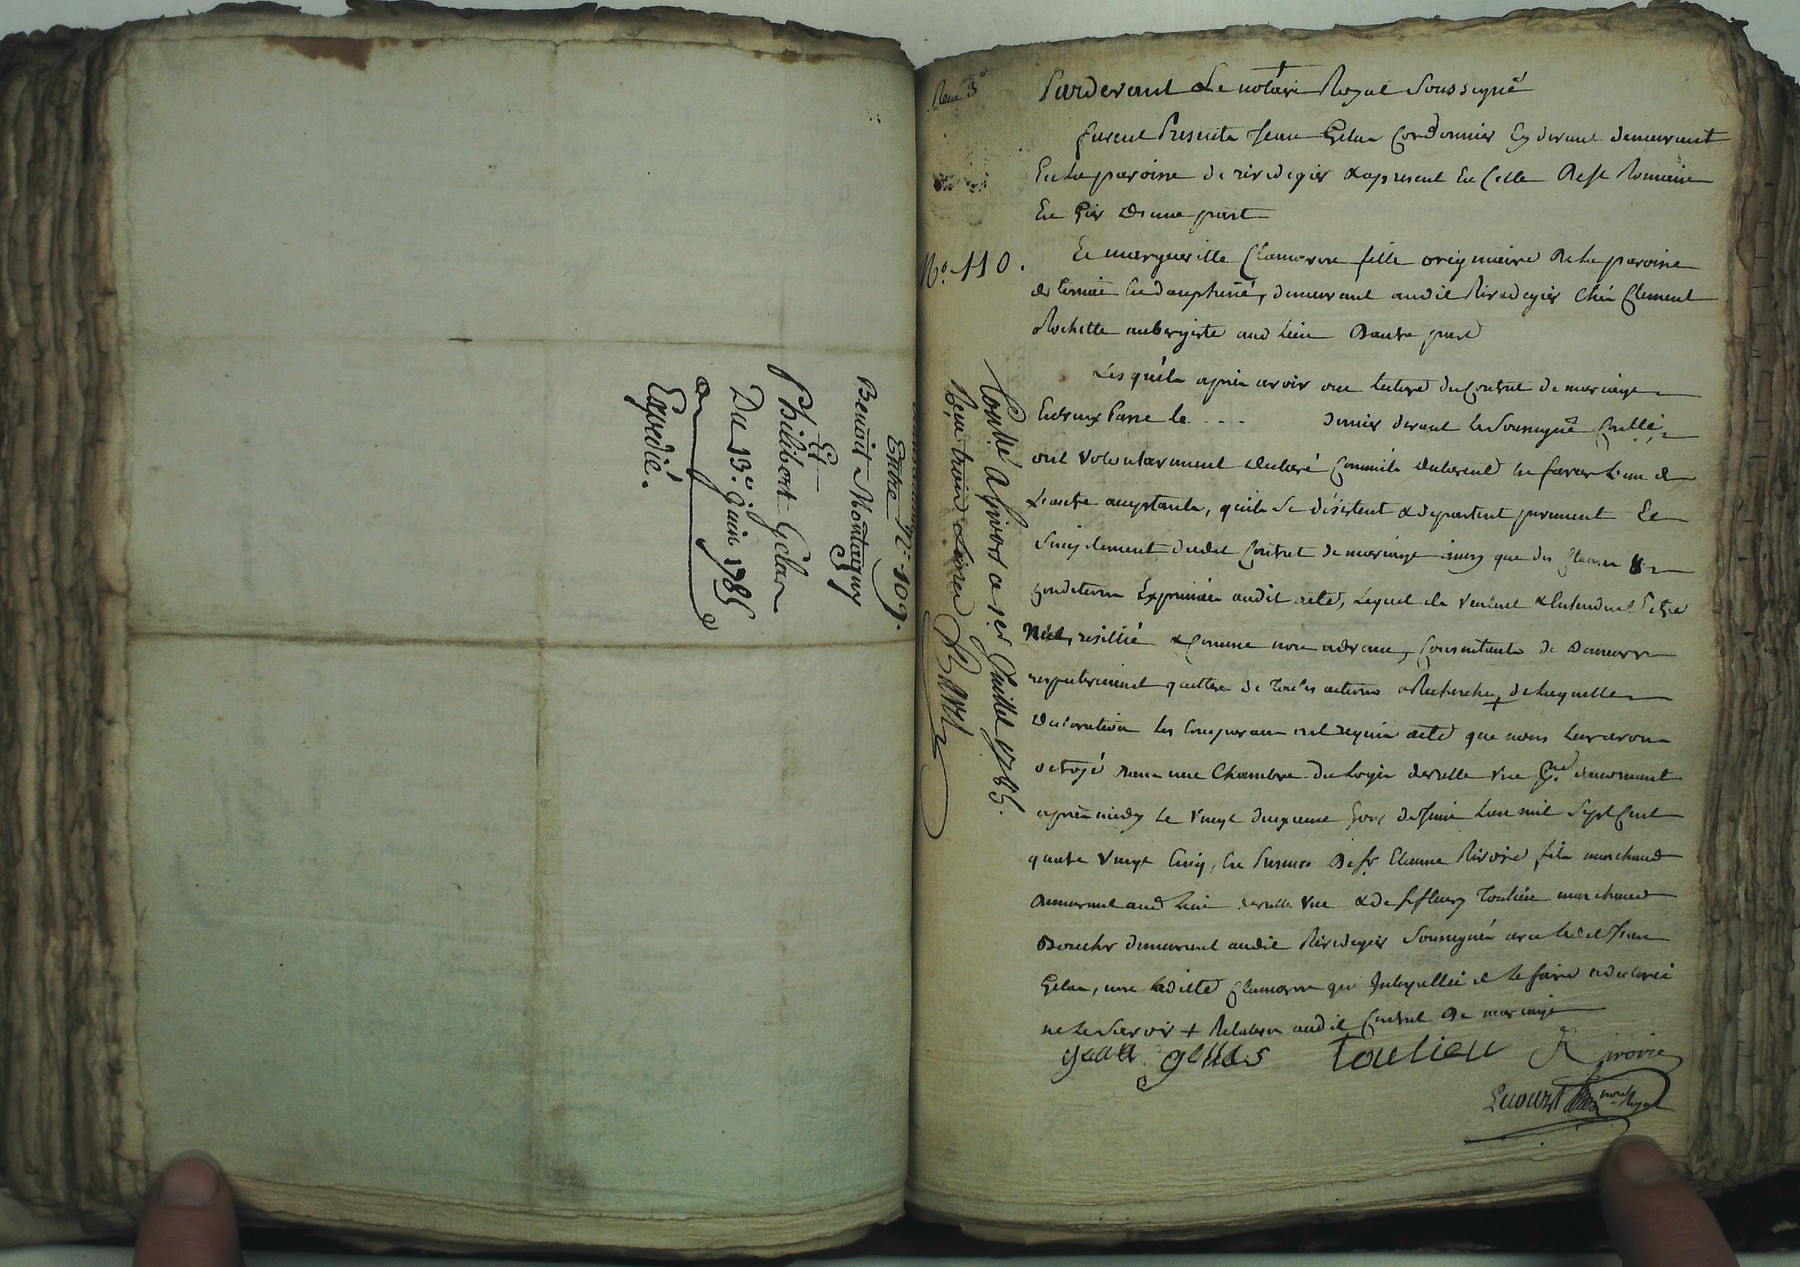 Entre N.° 109.
Benoit Montaguy
Et
Philibert Gelas
Du 13.e Juin 1785
Expédié.
N.° 110.
Controllé a Givors ce 1er Juillet 1785.
Reçu trois livres
Pardevant Le notaire Royal soussigné
furent Presents Jean Gelas Cordonnier Cy devant demeurant
En La paroisse de rivedegier & apresent En Celle De St Romain
En Gier D'une part
Et marguerite Clamaron fille originaire De La paroisse
de ternai En dauphiné, demeurant audit Rivedegier Chés Clement
Rochette aubergiste aud Lieu D'autre part
Lesquels après avoir oui lecture du Contrat de mariage
Entreux Passé le . . . dernier devant le Soussigné
ont volontairement declaré Comme ils declarent En faveur L'un de
L'autre acceptants, qu'ils se désistent & departent purement Et
Simplement dudit Contrat de mariage ainsy que des Clauses &
Conditions Exprimées audit acte, Lequel ils veulent & Entendent Etre
Nul, resillié & Comme non advenu, Consentants de Demeurer
respectivement quittes de toutes actions & Recherches, de Laquelle
Declaration Les Comparans ont requis acte que nous Leur avons
octroyé dans une Chambre du Logis de
après midy Le vingt deuxieme Jour de Juin L'an mil Sept Cent
quatre vingt Cinq, En Presence De Sr Etienne Rivoire fils marchand
demeurant aud Lieu & de Sr fleury Toulieu marchand
Boucher demeurant audit Rivedegier Soussignés avec Ledit Jean
Gelas, non Ladite Clamaron qui Interpellée de Le faire a declaré
ne Le Savoir + Relatés audit Contrat De mariage
jean gellas Toulieu Rivoire